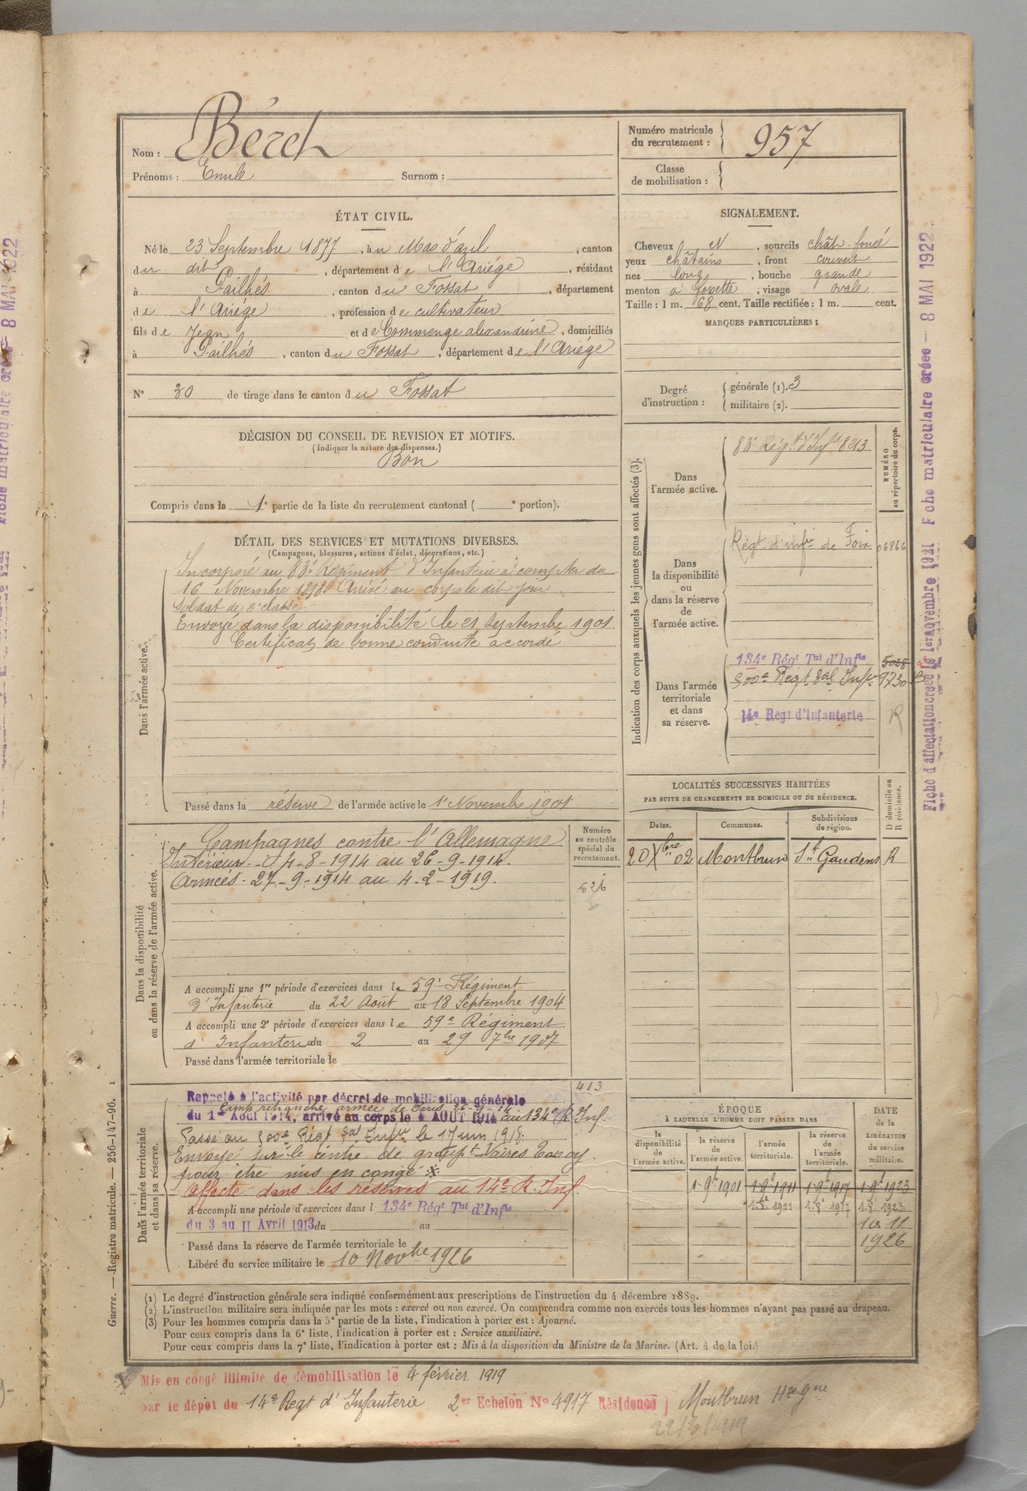 Nom : Béret
Prénoms : Emile Surnom :
Numéro matricule du recrutement : 957
Classe de mobilisation :
ÉTAT CIVIL.
Né le 23 Septembre 1877, à u Mas d'azil, canton
du dit, département de l'Ariége, résidant
à Pailhés, canton du Fossat, département
de l'Ariége, profession de cultivateur
fils de Jean et de Commenge alexandrine, domiciliés
à Pailhés, canton du Fossat, département de l'Ariége
N° 30 de tirage dans le canton du Fossat
SIGNALEMENT.
Cheveux N, sourcils chât. foncé
yeux chatains, front couvert
nez long, bouche grande
menton à fossette, visage ovale
Taille : 1 m. 68 cent. Taille rectifiée : 1 m. cent.
MARQUES PARTICULIÈRES :
Degré d'instruction : générale (1). 3
militaire (2).
DÉCISION DU CONSEIL DE REVISION ET MOTIFS.
(Indiquer la nature des dispenses.)
Bon
Compris dans la 1e partie de la liste du recrutement cantonal ( e portion).
DÉTAIL DES SERVICES ET MUTATIONS DIVERSES.
(Campagnes, blessures, actions d'éclat, décorations, etc.)
Dans l'armée active.
Incorporé au 83e Régiment d'Infanterie à compter du
16 Novembre 1898. Arrivé au corps le dit jour
Soldat de 2e classe
Envoyé dans la disponibilité le 21 Septembre 1901
Certificat de bonne conduite accordé
Passé dans la réserve de l'armée active le 1er Novembre 1901
Indication des corps auxquels les jeunes gens sont affectés (3).
NUMÉRO au répertoire du corps.
Dans l'armée active.
83e Régt d'Inf 8213
Dans la disponibilité ou dans la réserve de l'armée active.
Régt d'infie de Foix 06866
Dans l'armée territoriale et dans sa réserve.
134e Régt Tal d'Infie
500e Régt Tal Infie 9730
14e Régt d'Infanterie R
LOCALITÉS SUCCESSIVES HABITÉES
PAR SUITE DE CHANGEMENTS DE DOMICILE OU DE RÉSIDENCE.
Dates. Communes. Subdivisions de région. D domicile ou R résidence.
20 Xbre 02 Montbrun St Gaudens R
Dans la disponibilité ou dans la réserve de l'armée active.
Numéro au contrôle spécial du recrutement.
Campagnes contre l'Allemagne
Intérieur - 4-8-1914 au 26-9-1914.
Armées - 27-9-1914 au 4-2-1919.
526
A accompli une 1re période d'exercices dans le 59e Régiment
d'Infanterie du 22 Août au 18 Septembre 1904
A accompli une 2e période d'exercices dans le 59e Régiment
d'Infanterie du 2 au 29 7bre 1907
Passé dans l'armée territoriale le
Dans l'armée territoriale et dans sa réserve.
413
Rappelé à l'activité par décret de mobilisation générale
Camp retranché armée de Paris
du 1er Août 1914, arrivé au corps le 4 AOUT 1914 au 134e R. Inf.
Passé au 500e Régt Tal Infie le 17 juin 1918.
Envoyé sur le centre de groupt Vaires Torcy
pour être mis en congé
Affecté dans les réserves au 14e R. Inf.
A accompli une période d'exercices dans l 134e Régt Tal d'Infie
du 3 au 11 Avril 1913 du au
Passé dans la réserve de l'armée territoriale le
Libéré du service militaire le 10 Novbre 1926
ÉPOQUE À LAQUELLE L'HOMME DOIT PASSER DANS
DATE DE LA LIBÉRATION du service militaire.
la disponibilité de l'armée active. la réserve de l'armée active. l'armée territoriale. la réserve de l'armée territoriale.
1 9bre 1901 1 9bre 1911 1 9bre 1917 1 9bre 1923
1926
(1) Le degré d'instruction générale sera indiqué conformément aux prescriptions de l'instruction du 4 décembre 1889.
(2) L'instruction militaire sera indiquée par les mots : exercé ou non exercé. On comprendra comme non exercés tous les hommes n'ayant pas passé au drapeau.
(3) Pour les hommes compris dans la 5e partie de la liste, l'indication à porter est : Ajourné.
Pour ceux compris dans la 6e liste, l'indication à porter est : Service auxiliaire.
Pour ceux compris dans la 7e liste, l'indication à porter est : Mis à la disposition du Ministre de la Marine. (Art. 4 de la loi.)
Guerre. — Registre matricule. — 256-147-96.
Mis en congé illimité de démobilisation le 4 février 1919
par le dépôt du 14e Regt d'Infanterie 2er Echelon No 4917 Résidence Montbrun Hte Ggne
Fiche d'affectation créée le 1er novembre 1921 Fiche matriculaire créée — 8 MAI 1922
8 MAI 1922